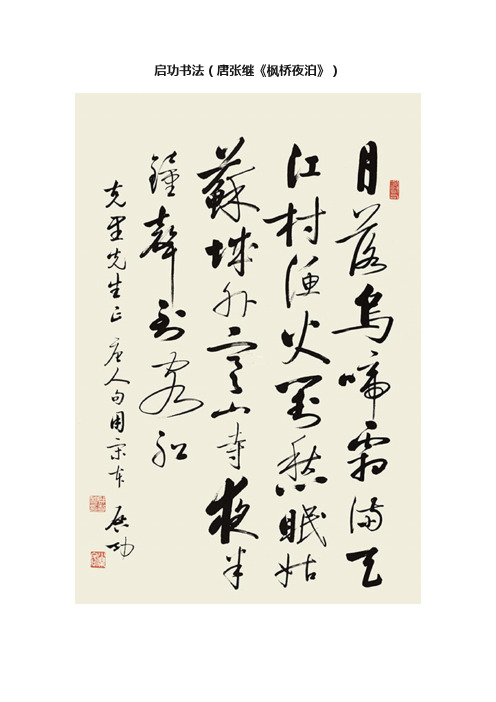 启功书法（唐张继《枫桥夜泊》）
月落烏啼霜滿天
江村漁火對愁眠姑
蘇城外寒山寺夜半
鐘聲到客船
克 先生正 唐人句用宋本 启功